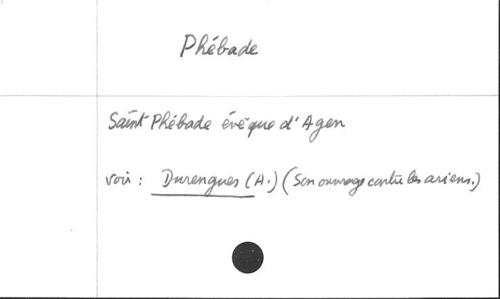 Phébade
Saint Phébade évêque d'Agen
voir : Durengues (A.) (Son ouvrage contre les ariens.)